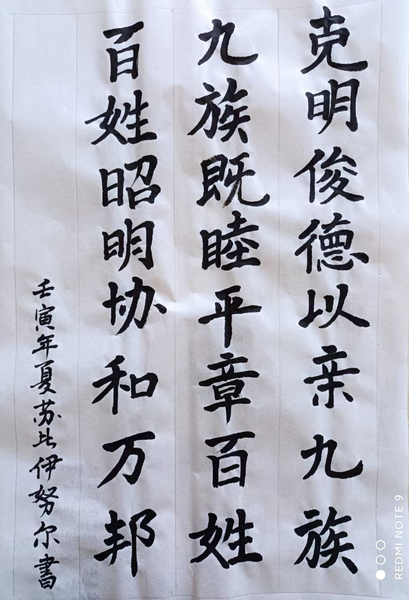 克明俊德以亲九族
九族既睦平章百姓
百姓昭明协和万邦
壬寅年夏苏比伊努尔書
REDMI NOTE 9